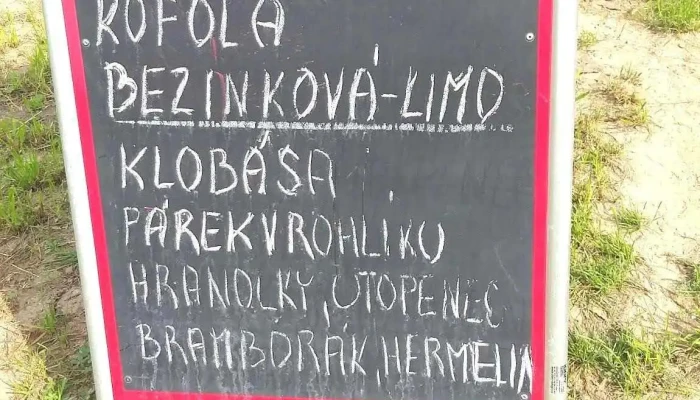 KOFOLA
BEZINKOVÁ-LIMO
KLOBÁSA
PÁREKVROHLIKU
HRANOLKY, UTOPENEC
BRAMBORÁK, HERMELIN